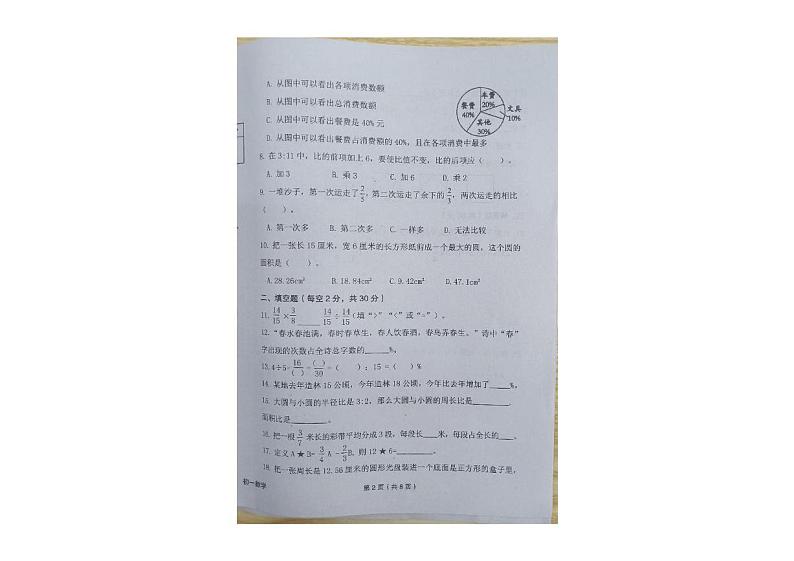 A. 从图中可以看出各项消费数额
B. 从图中可以看出总消费数额
C. 从图中可以看出餐费是 40%元
D. 从图中可以看出餐费占消费额的 40%，且在各项消费中最多
车费
20%
餐费
40%
文具
10%
其他
30%
8. 在 3:11 中，比的前项加上 6，要使比值不变，比的后项应（ ）。
A. 加 3 B. 乘 3 C. 加 6 D. 乘 2
9. 一堆沙子，第一次运走了2/5，第二次运走了余下的2/3，两次运走的相比
（ ）。
A. 第一次多 B. 第二次多 C. 一样多 D. 无法比较
10. 把一张长 15 厘米，宽 6 厘米的长方形纸剪成一个最大的圆，这个圆的
面积是（ ）。
A.28.26cm² B.18.84cm² C.9.42cm² D.47.1cm²
二、填空题（每空 2 分，共 30 分）
11. 14/15×3/8 _____ 14/15÷14/15（填“>”“<”或“=”）。
12. “春水春池满，春时春草生，春人饮春酒，春鸟弄春生。”诗中“春”
字出现的次数占全诗总字数的_____%。
13. 4÷5=16/( )=( )/30=（ ）：15 =（ ）%
14. 某地去年造林 15 公顷，今年造林 18 公顷，今年比去年增加了____%。
15. 大圆与小圆的半径比是 3:2，那么大圆与小圆的周长比是________，
面积比是________。
16. 把一根3/7米长的彩带平均分成 3 段，每段长___米，每段占全长的___。
17. 定义 A★B=3/4A-2/3B，则 12★6=________。
18. 把一张周长是 12.56 厘米的圆形光盘装进一个底面是正方形的盒子里，
初一数学
第 2 页（共 8 页）